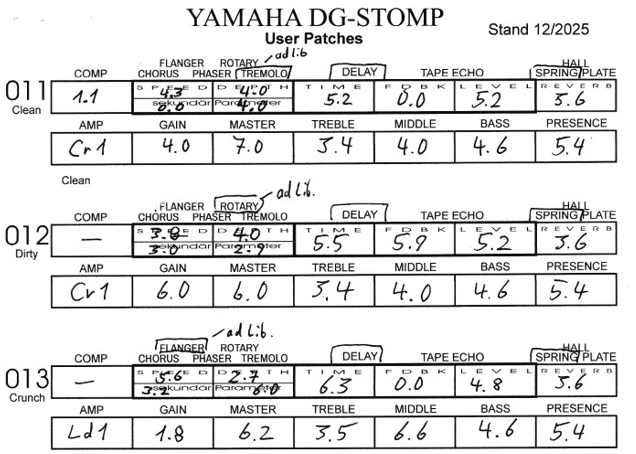 YAMAHA DG-STOMP
User Patches
Stand 12/2025
ad lib
FLANGER ROTARY HALL
COMP CHORUS PHASER TREMOLO DELAY TAPE ECHO SPRING/PLATE
011 1.1 SPEED 4.3 DEPTH 4.0 TIME 5.2 FDBK 0.0 LEVEL 5.2 REVERB 3.6
Clean 0.0 sekundär Parameter 4.0
AMP GAIN MASTER TREBLE MIDDLE BASS PRESENCE
Cr1 4.0 7.0 3.4 4.0 4.6 5.4
Clean
ad lib.
FLANGER ROTARY HALL
COMP CHORUS PHASER TREMOLO DELAY TAPE ECHO SPRING/PLATE
012 — SPEED 3.8 DEPTH 4.0 TIME 5.5 FDBK 5.9 LEVEL 5.2 REVERB 3.6
Dirty 3.0 sekundär Parameter 2.9
AMP GAIN MASTER TREBLE MIDDLE BASS PRESENCE
Cr1 6.0 6.0 3.4 4.0 4.6 5.4
ad lib.
FLANGER ROTARY HALL
COMP CHORUS PHASER TREMOLO DELAY TAPE ECHO SPRING/PLATE
013 — SPEED 5.6 DEPTH 2.7 TIME 6.3 FDBK 0.0 LEVEL 4.8 REVERB 3.6
Crunch 3.2 sekundär Parameter 6.0
AMP GAIN MASTER TREBLE MIDDLE BASS PRESENCE
Ld1 1.8 6.2 3.5 6.6 4.6 5.4